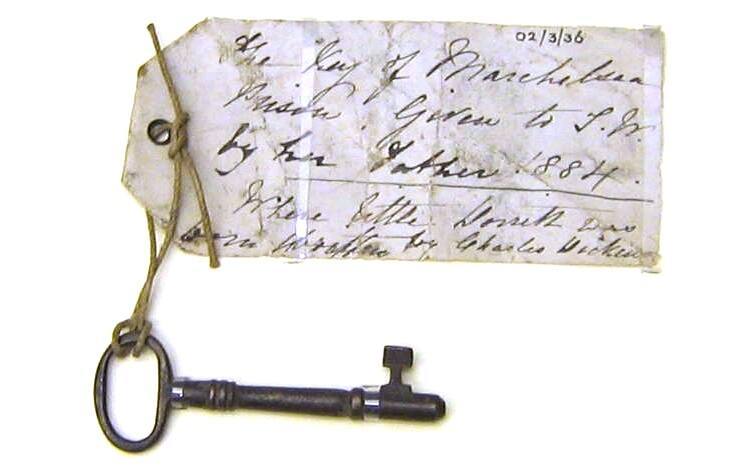 02/3/36
The Key of Marchelsea
Prison. Given to S.W.
by her Father 1884.
Where little Dorritt was
born written by Charles Dickens